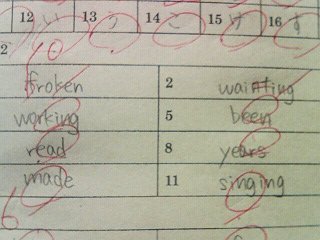 12 い 13 う 14 こ 15 け 16 す
2 10
froken 2 wainting
working 5 been
read 8 years
made 11 singing
6